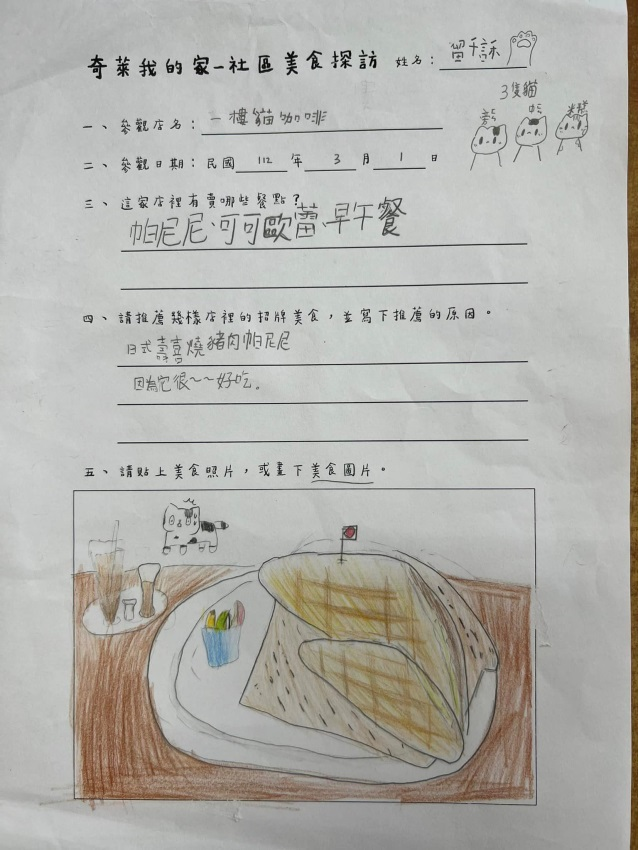 奇萊我的家-社區美食探訪 姓名：
3隻貓
一、參觀店名：一樓貓咖啡
二、參觀日期：民國 112 年 3 月 1 日
三、這家店裡有賣哪些餐點？
帕尼尼、可可歐蕾、早午餐
四、請推薦幾樣店裡的招牌美食，並寫下推薦的原因。
日式壽喜燒豬肉帕尼尼
因為它很~~好吃。
五、請貼上美食照片，或畫下美食圖片。